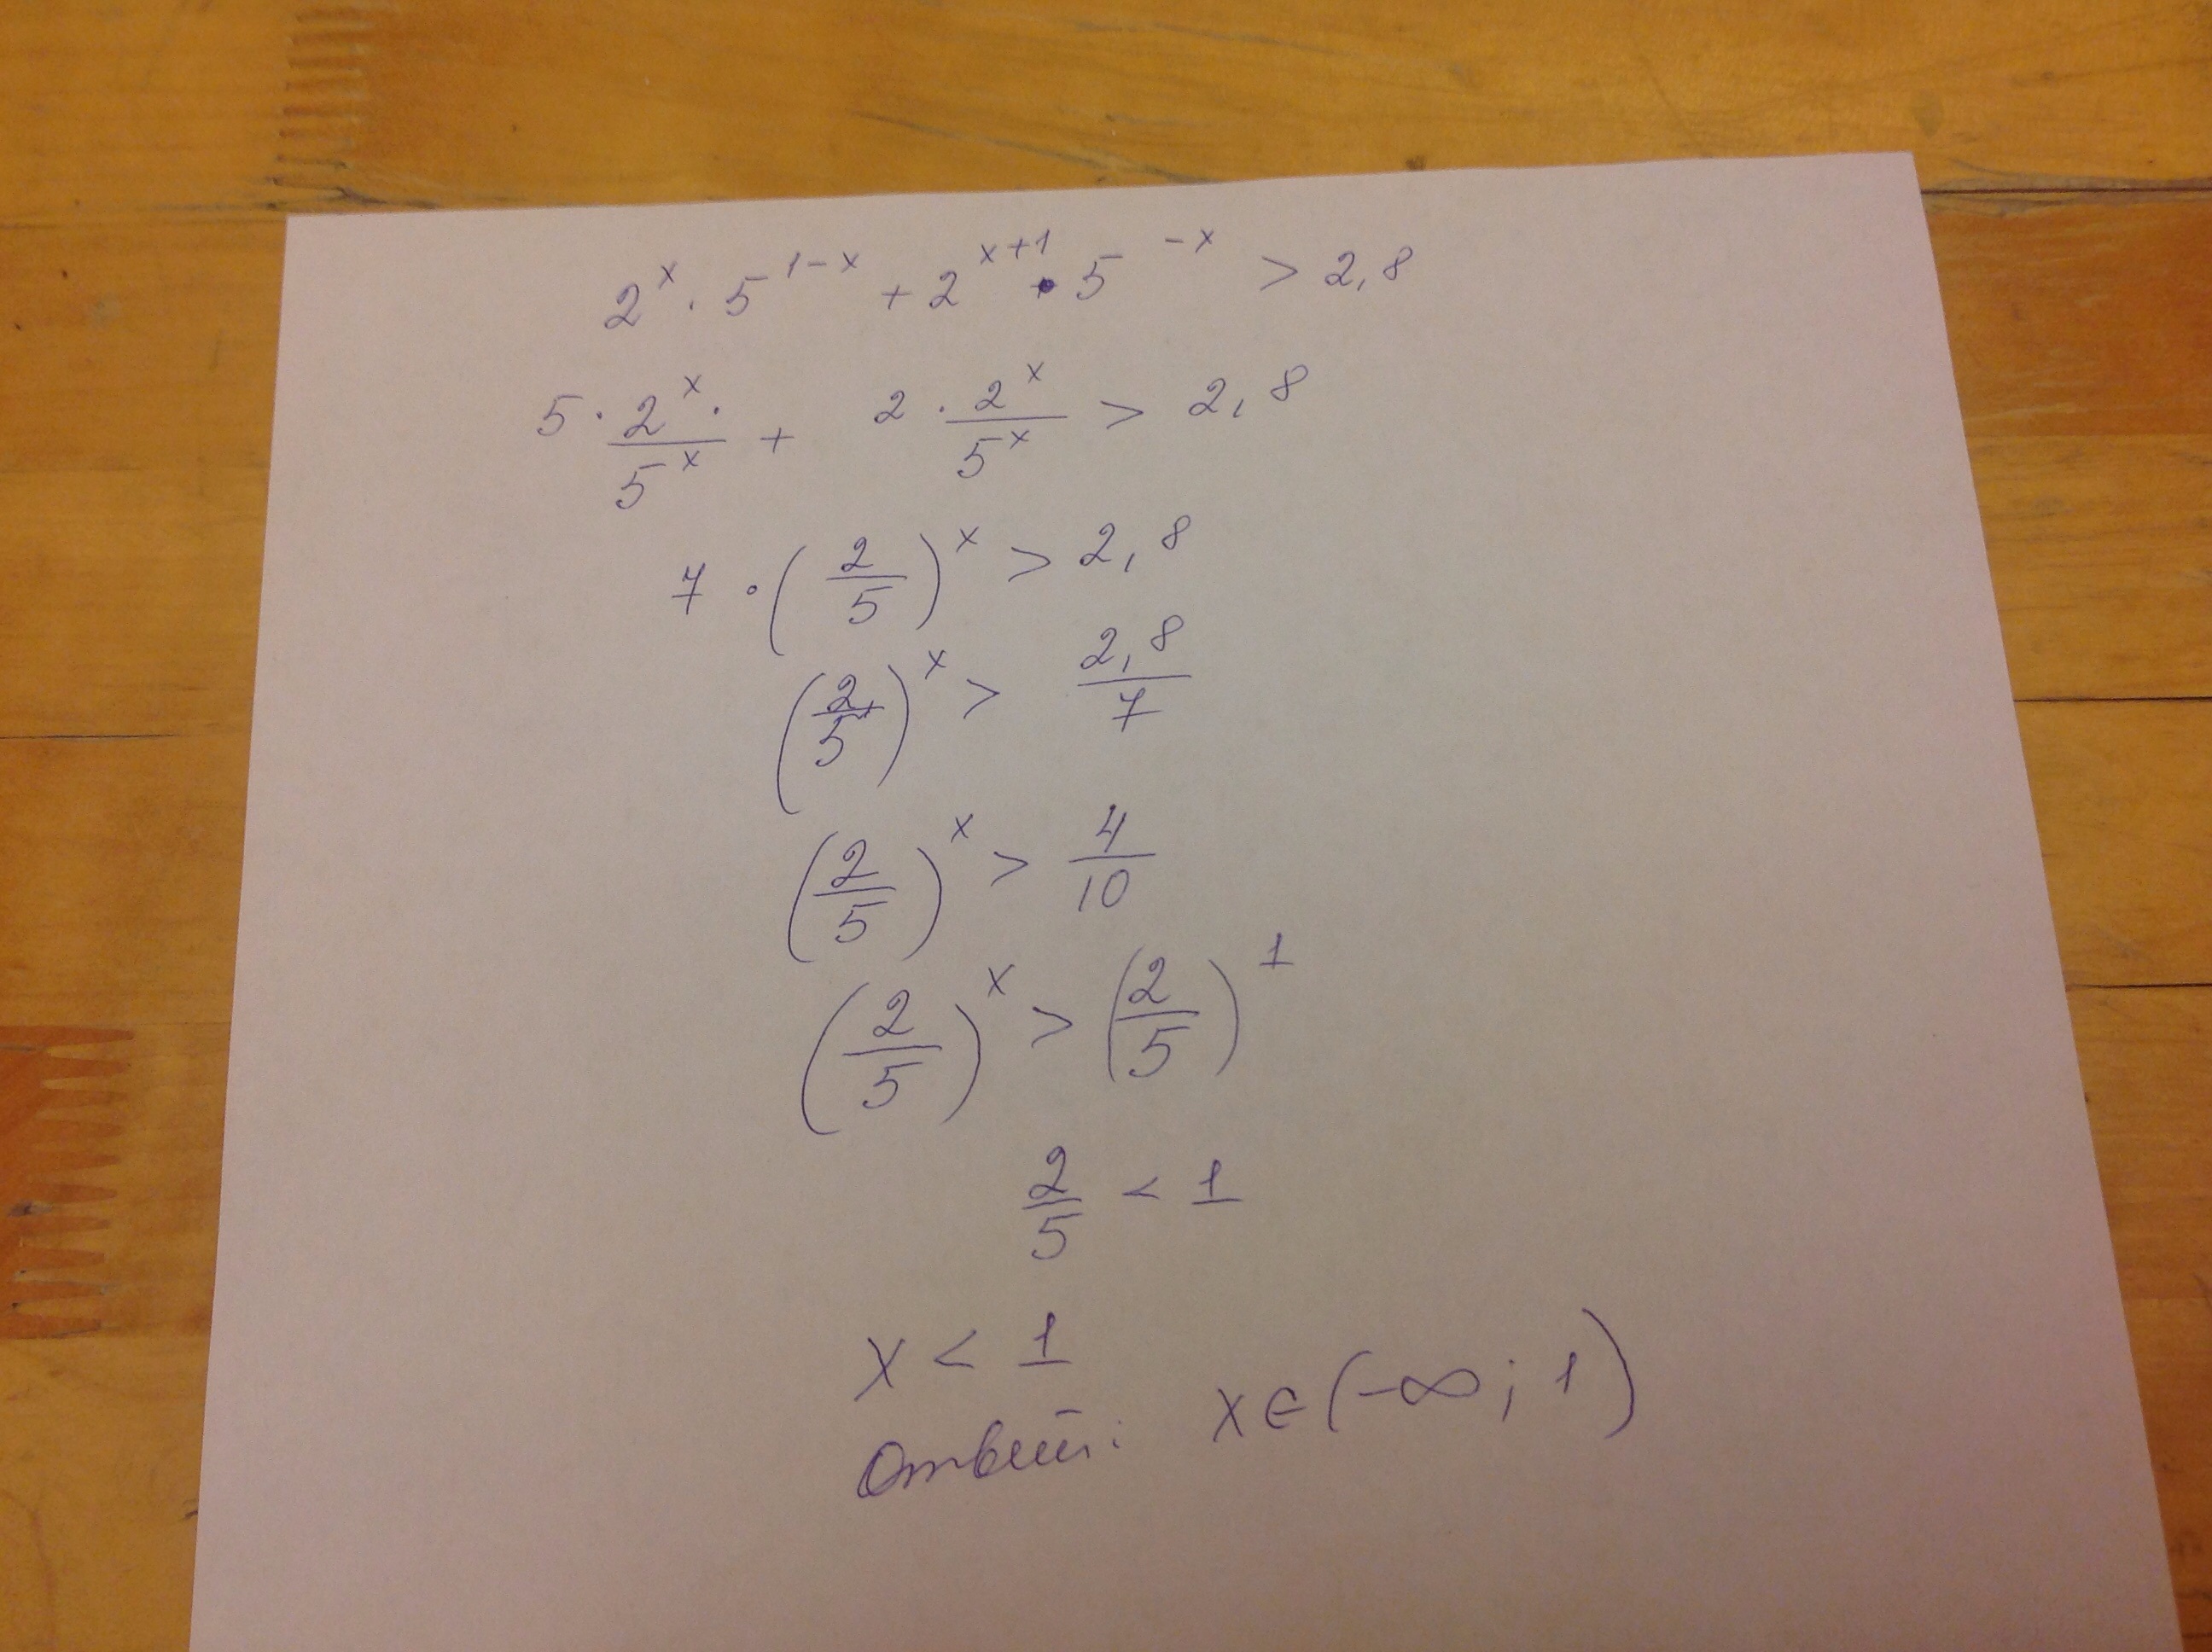 2^x · 5^(1-x) + 2^(x+1) · 5^(-x) > 2,8
5 · 2^x · / 5^x + 2 · 2^x / 5^x > 2,8
7 · (2/5)^x > 2,8
(2/5)^x > 2,8/7
(2/5)^x > 4/10
(2/5)^x > (2/5)^1
2/5 < 1
x < 1
Ответ: x ∈ (-∞; 1)